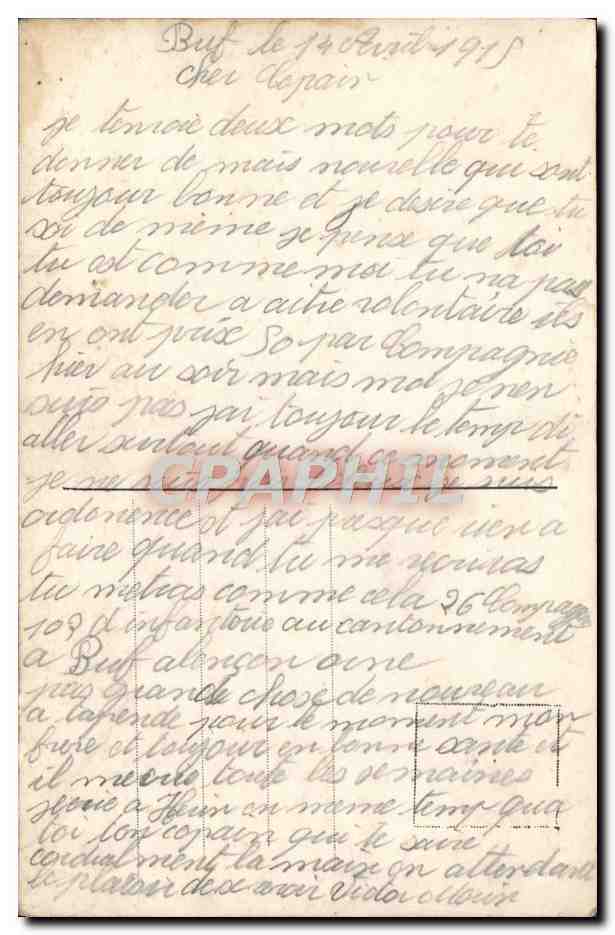 Buf le 14 Avril 1915
cher Copain
je tenvoie deux mots pour te
donner de mais nouvelle qui sont
toujour bonne et je desire que tu
soi de meime je pense que toi
tu est comme moi tu na pas
demander a aitre volontaire ils
en ont prix 50 par Compagnie
hier au soir mais moi je nen
suis pas jai toujour le temp di
aller surtout quand ce moment
je ne suis
CPAPHIL
ordonence et jai presque rien a
faire quand tu me
tu metras comme cela 26 Compag
103 d infanterie au cantonnement
a Buf alençon orne
pas grande chose de nouveau
a tapende pour le moment mon
frere et toujour en bonne sante et
il toute les semaines
a Henri en meme temp qua
toi ton copain qui te saire
cordialment la main en attendant
le plaisir de